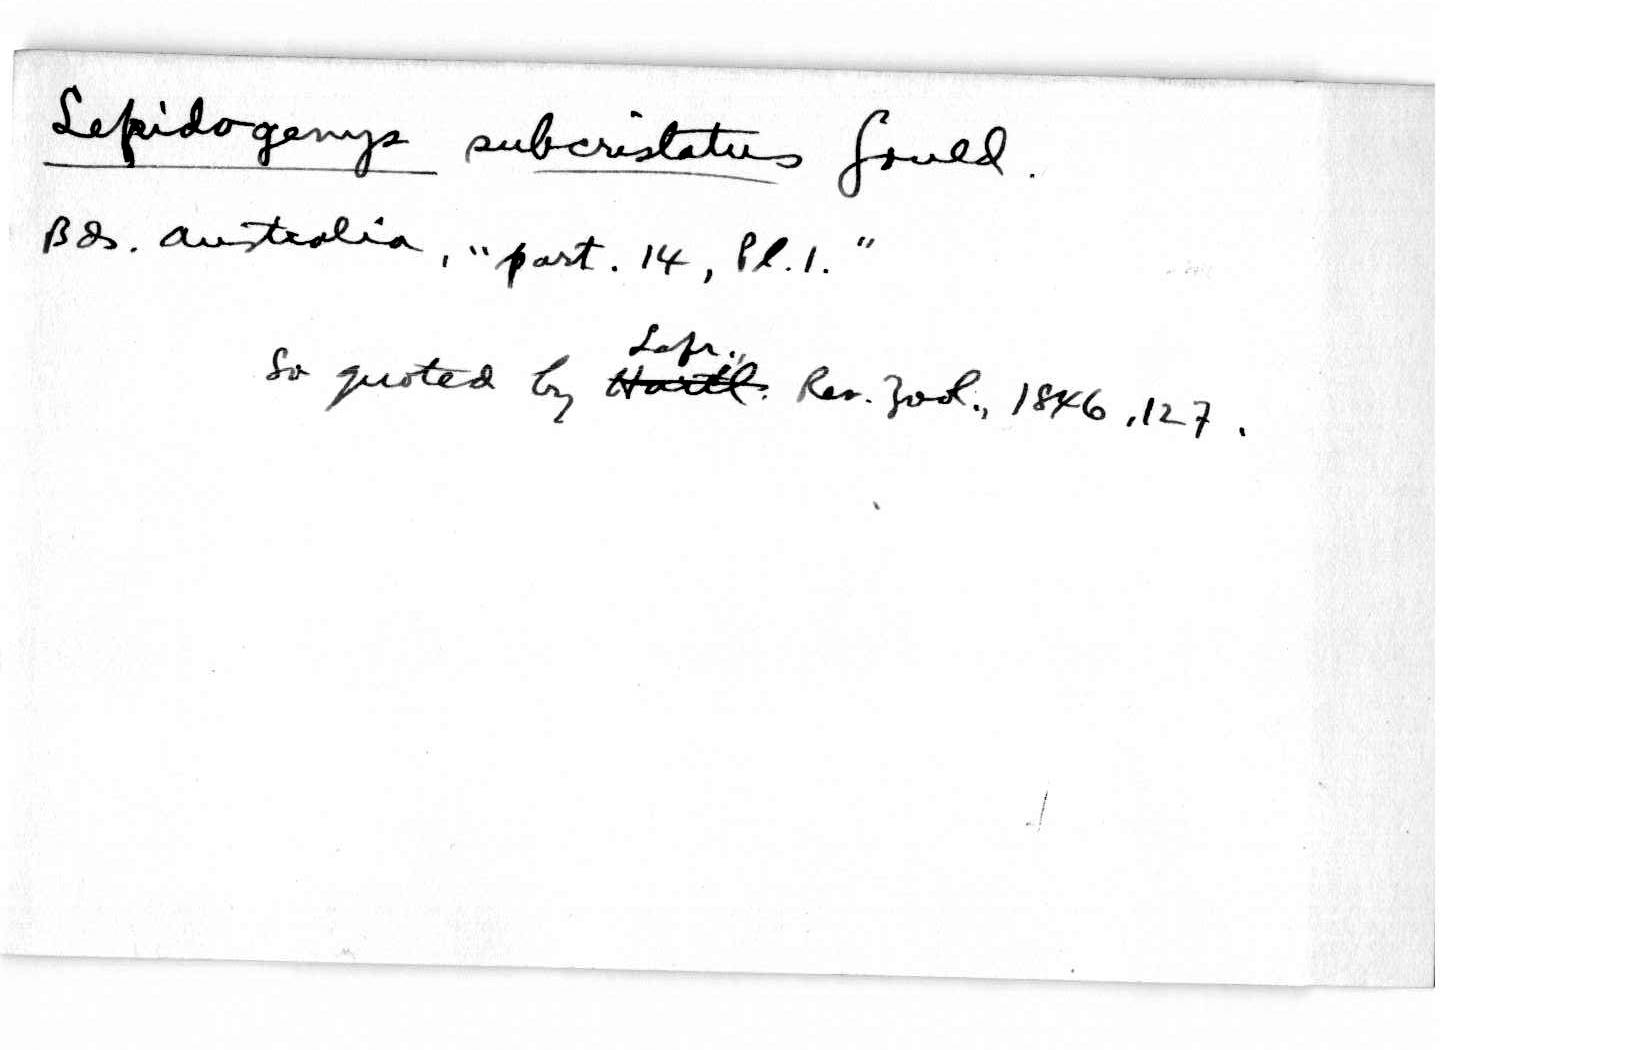 Lepidogenys subcristatus Gould.
Bds. Australia, "part. 14, Pl. 1."
Lafr.,
So quoted by Hartl. Rev. Zool., 1846, 127.